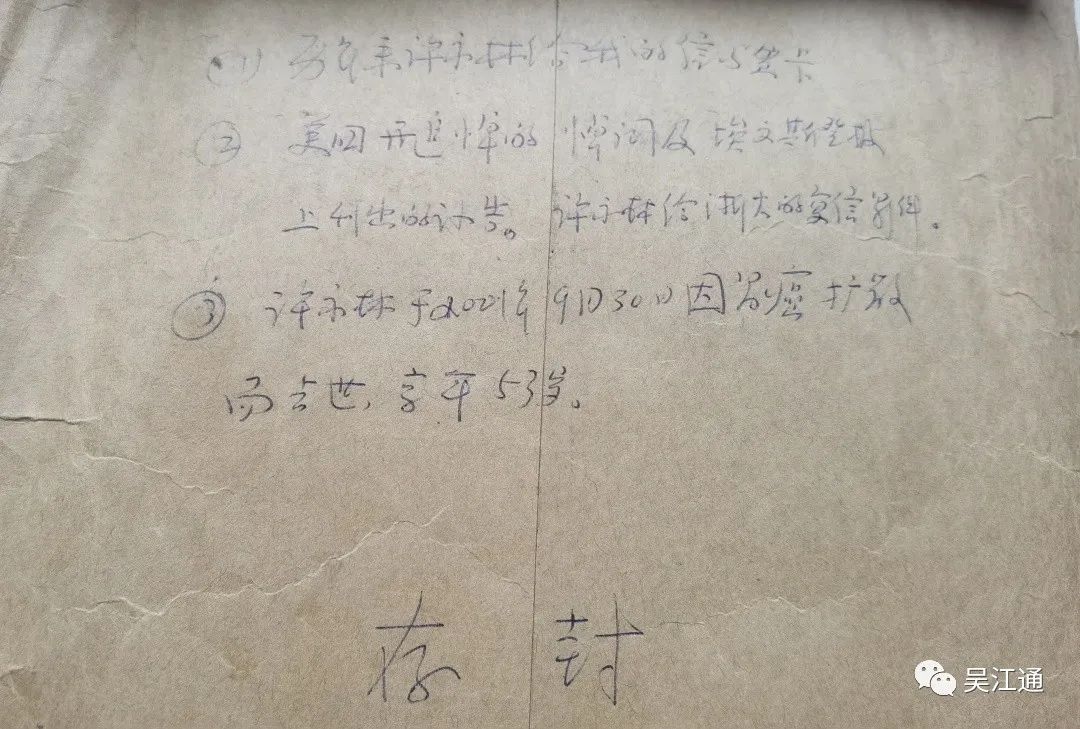 (1) 历年来许林给我的信与贺卡
② 美国开追悼的悼词及埃文斯登报
上刊出的讣告。许林给浙大的复信件。
③ 许林于2001年9月30日因胃癌扩散
而去世，享年53岁。
存 封
吴江通